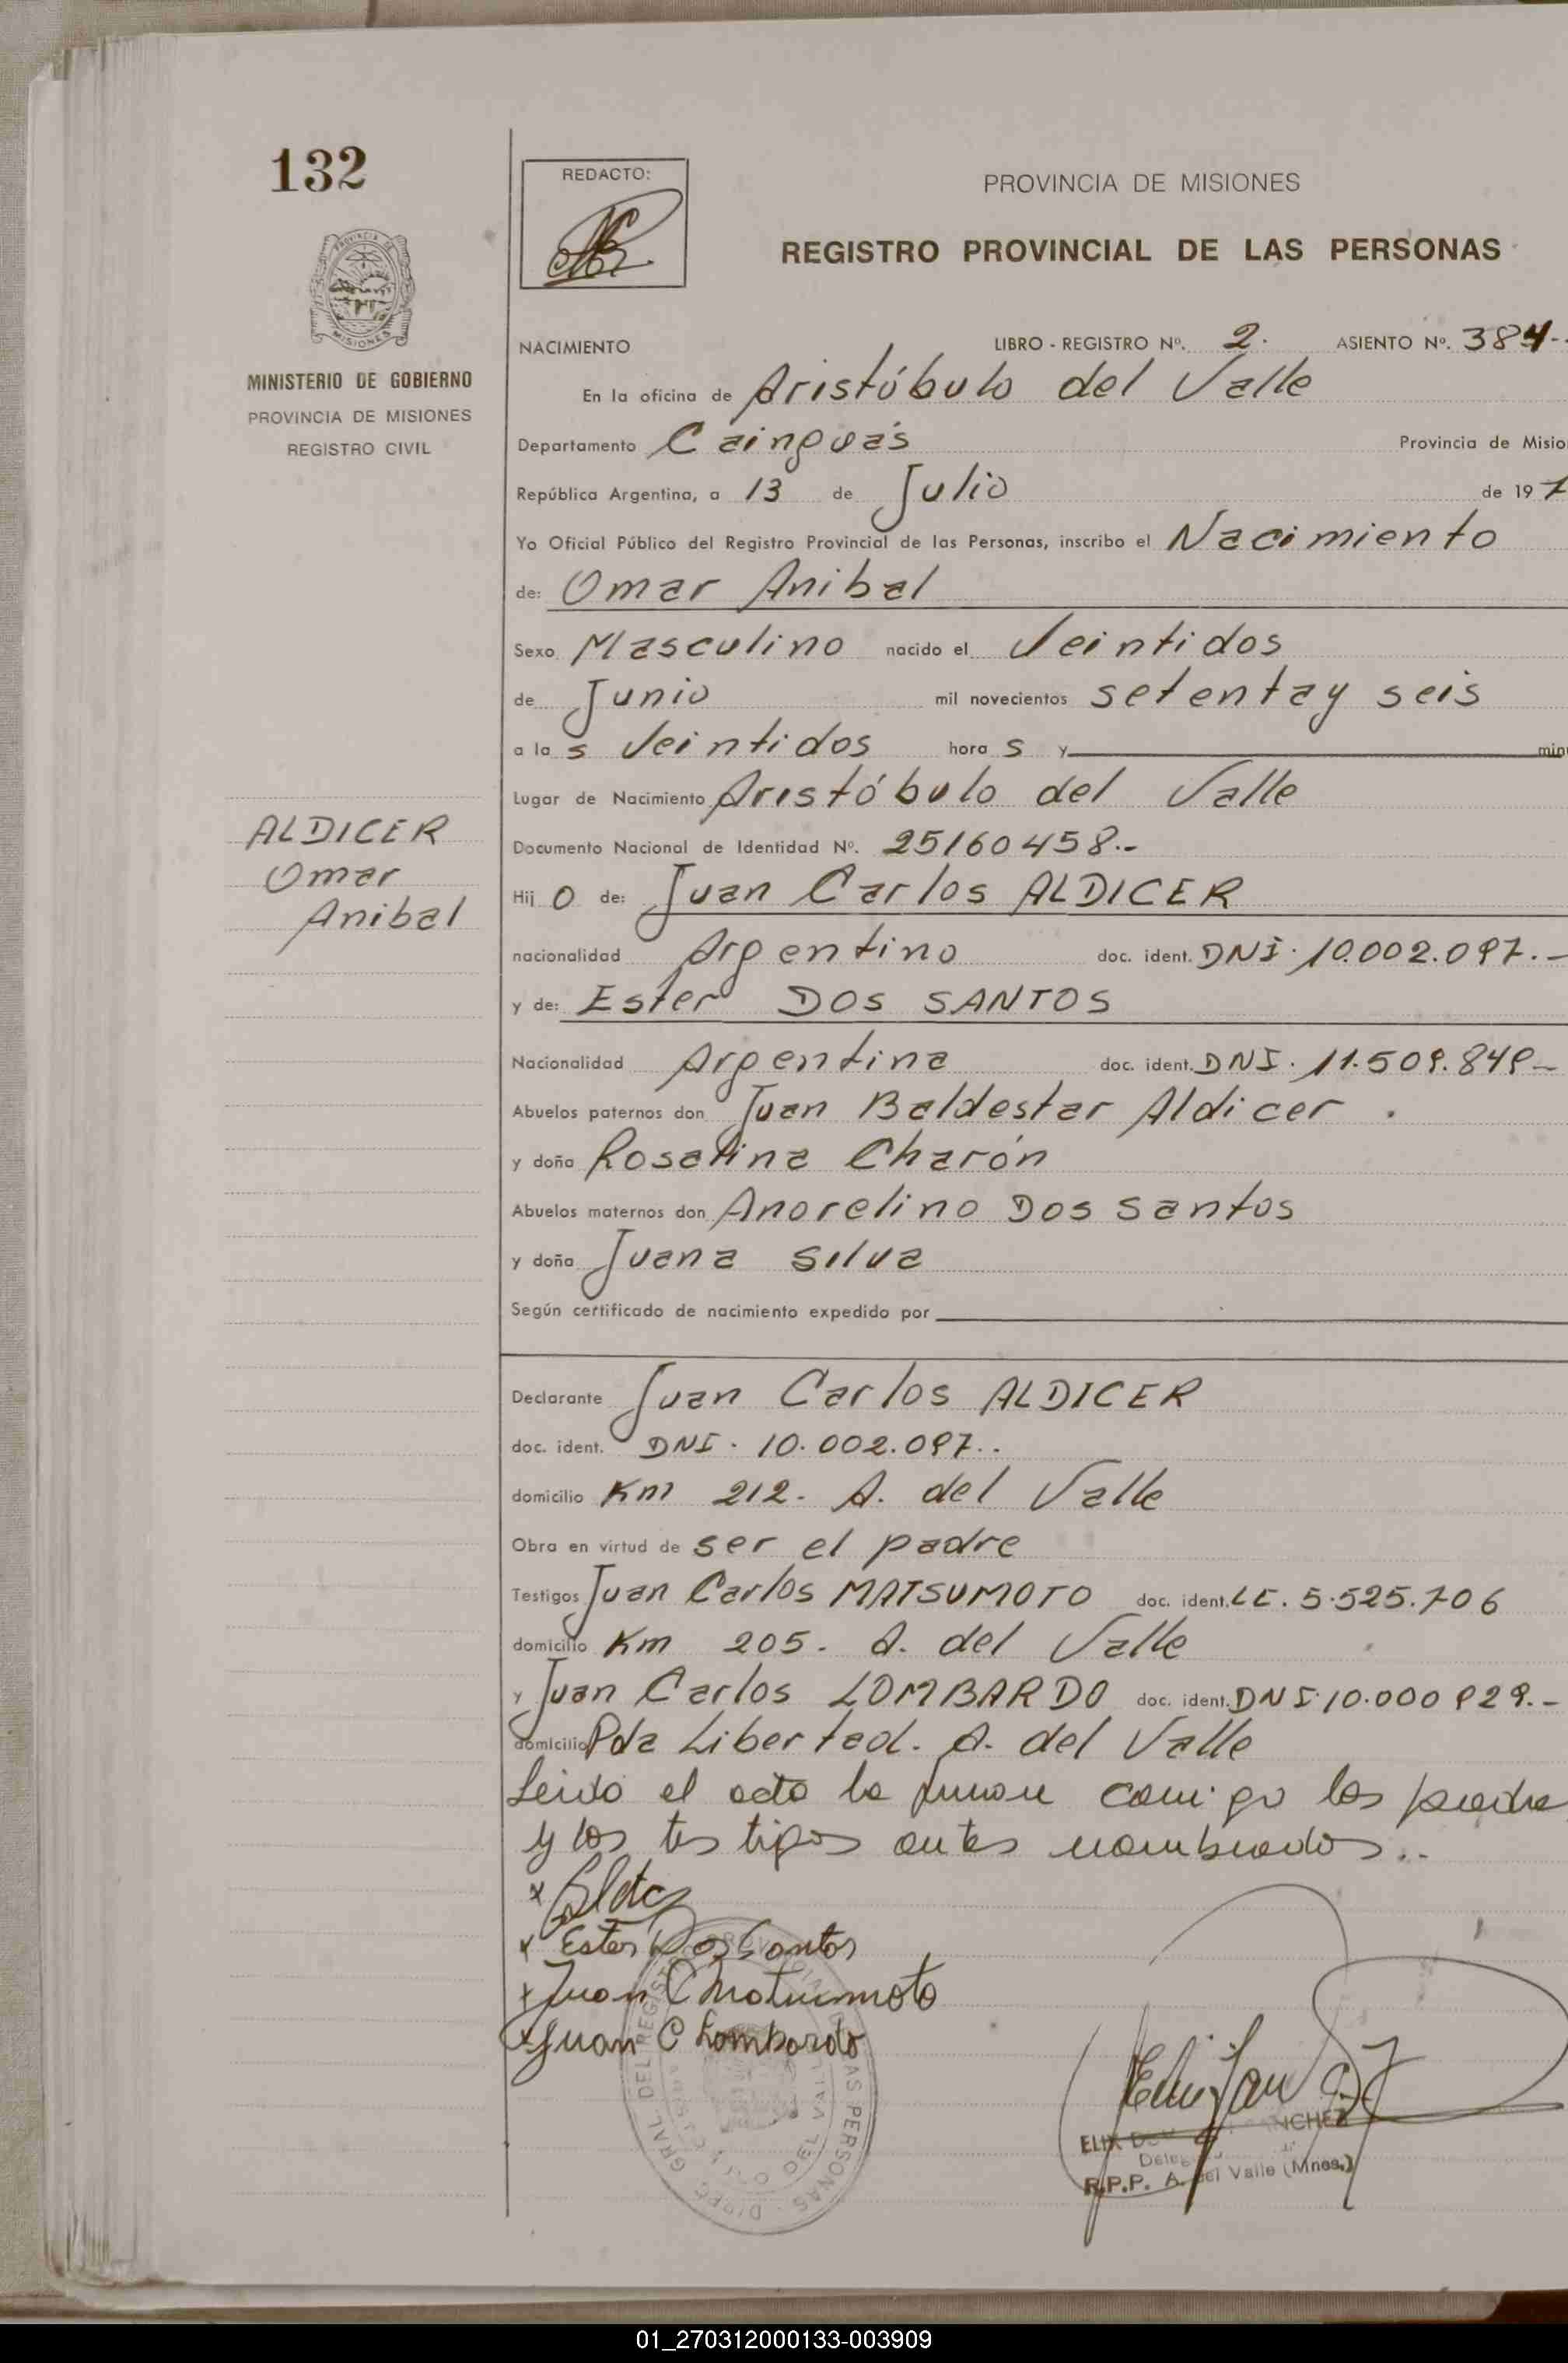 132
REDACTO:
PROVINCIA DE MISIONES
REGISTRO PROVINCIAL DE LAS PERSONAS
PROVINCIA DE
MISIONES
MINISTERIO DE GOBIERNO
PROVINCIA DE MISIONES
REGISTRO CIVIL
NACIMIENTO LIBRO - REGISTRO Nº. 2. ASIENTO Nº. 384-.
En la oficina de Aristóbulo del Valle
Departamento Cainguás Provincia de Misio
República Argentina, a 13 de Julio de 197
Yo Oficial Público del Registro Provincial de las Personas, inscribo el Nacimiento
de: Omar Anibal
Sexo Masculino nacido el Veintidos
de Junio mil novecientos setentay seis
a las Veintidos horas y minu
Lugar de Nacimiento Aristóbulo del Valle
Documento Nacional de Identidad Nº. 25160458.-
ALDICER
Omar
Anibal
Hijo de: Juan Carlos ALDICER
nacionalidad Argentino doc. ident. DNI. 10.002.097.-
y de: Ester DOS SANTOS
Nacionalidad Argentina doc. ident. DNI. 11.509.849-
Abuelos paternos don Juan Baldestar Aldicer .
y doña Rosalina Charón
Abuelos maternos don Anorelino Dos Santos
y doña Juana Silva
Según certificado de nacimiento expedido por
Declarante Juan Carlos ALDICER
doc. ident. DNI. 10.002.097..
domicilio Km 212. A. del Valle
Obra en virtud de ser el padre
Testigos Juan Carlos MATSUMOTO doc. ident. LE. 5.525.706
domicilio Km 205. A. del Valle
y Juan Carlos LOMBARDO doc. ident. DNI 10.000 929.-
domicilio Pda Libertad. A. del Valle
Leido el acta la firman conmigo los padre
y los testigos antes nombrados..
x Ester Dos Santos
x Juan C Matsumoto
x Juan C Lombardo
DIREC. GRAL. DEL REGISTRO PROVINCIAL DE LAS PERSONAS
DEL VALLE
ELIX SANCHEZ
R.P.P. A. del Valle (Mnes.)
01_270312000133-003909